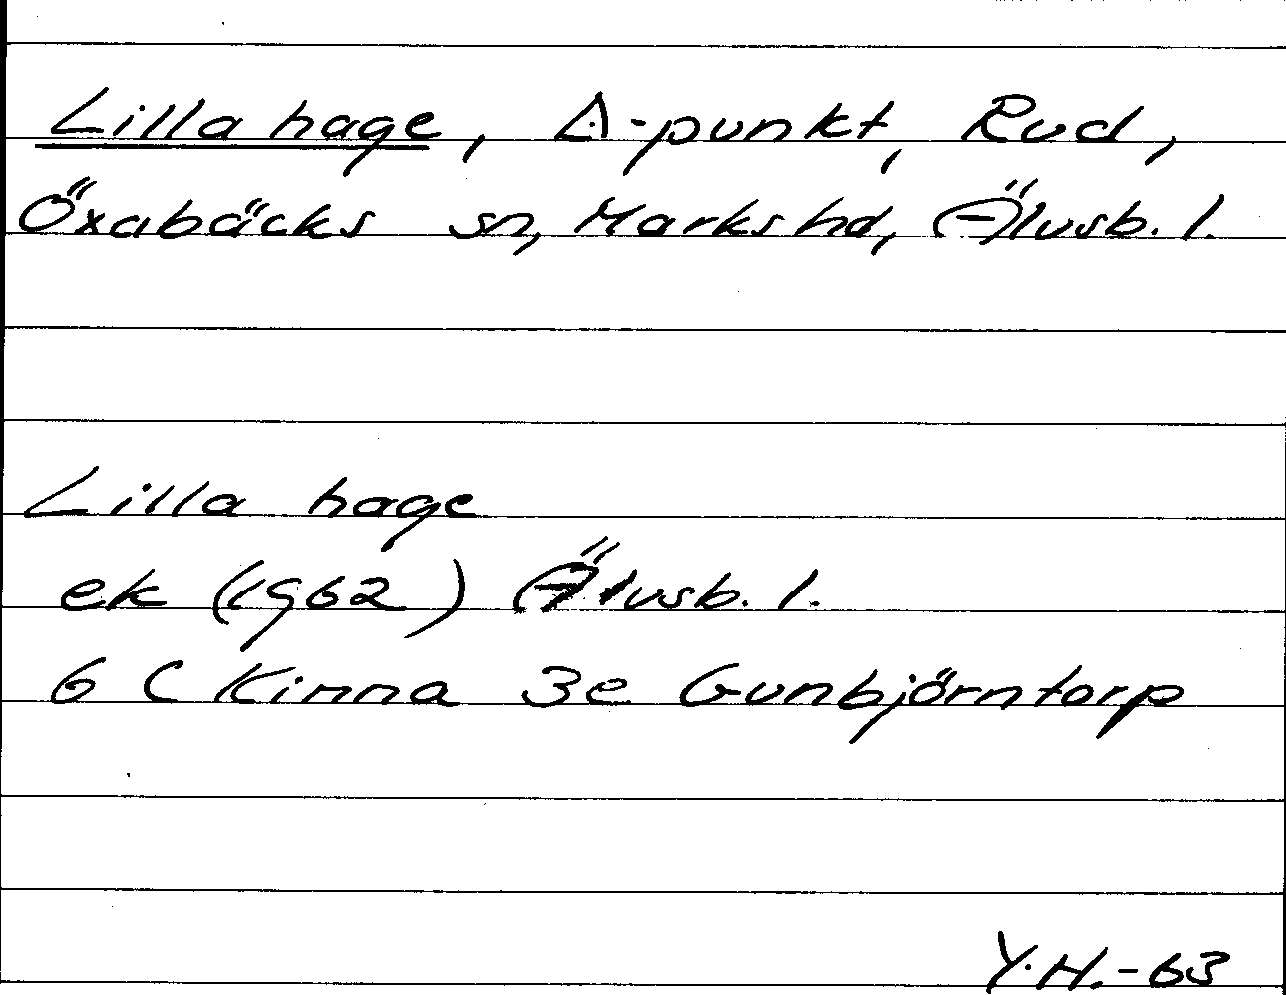 Lilla hage, ∆-punkt, Rud,
Öxabäcks sn, Marks hd, Älvsb. l.
Lilla hage
ek (1962) Älvsb. l.
6 C Kinna 3e Gunbjörntorp
Y.H.-63